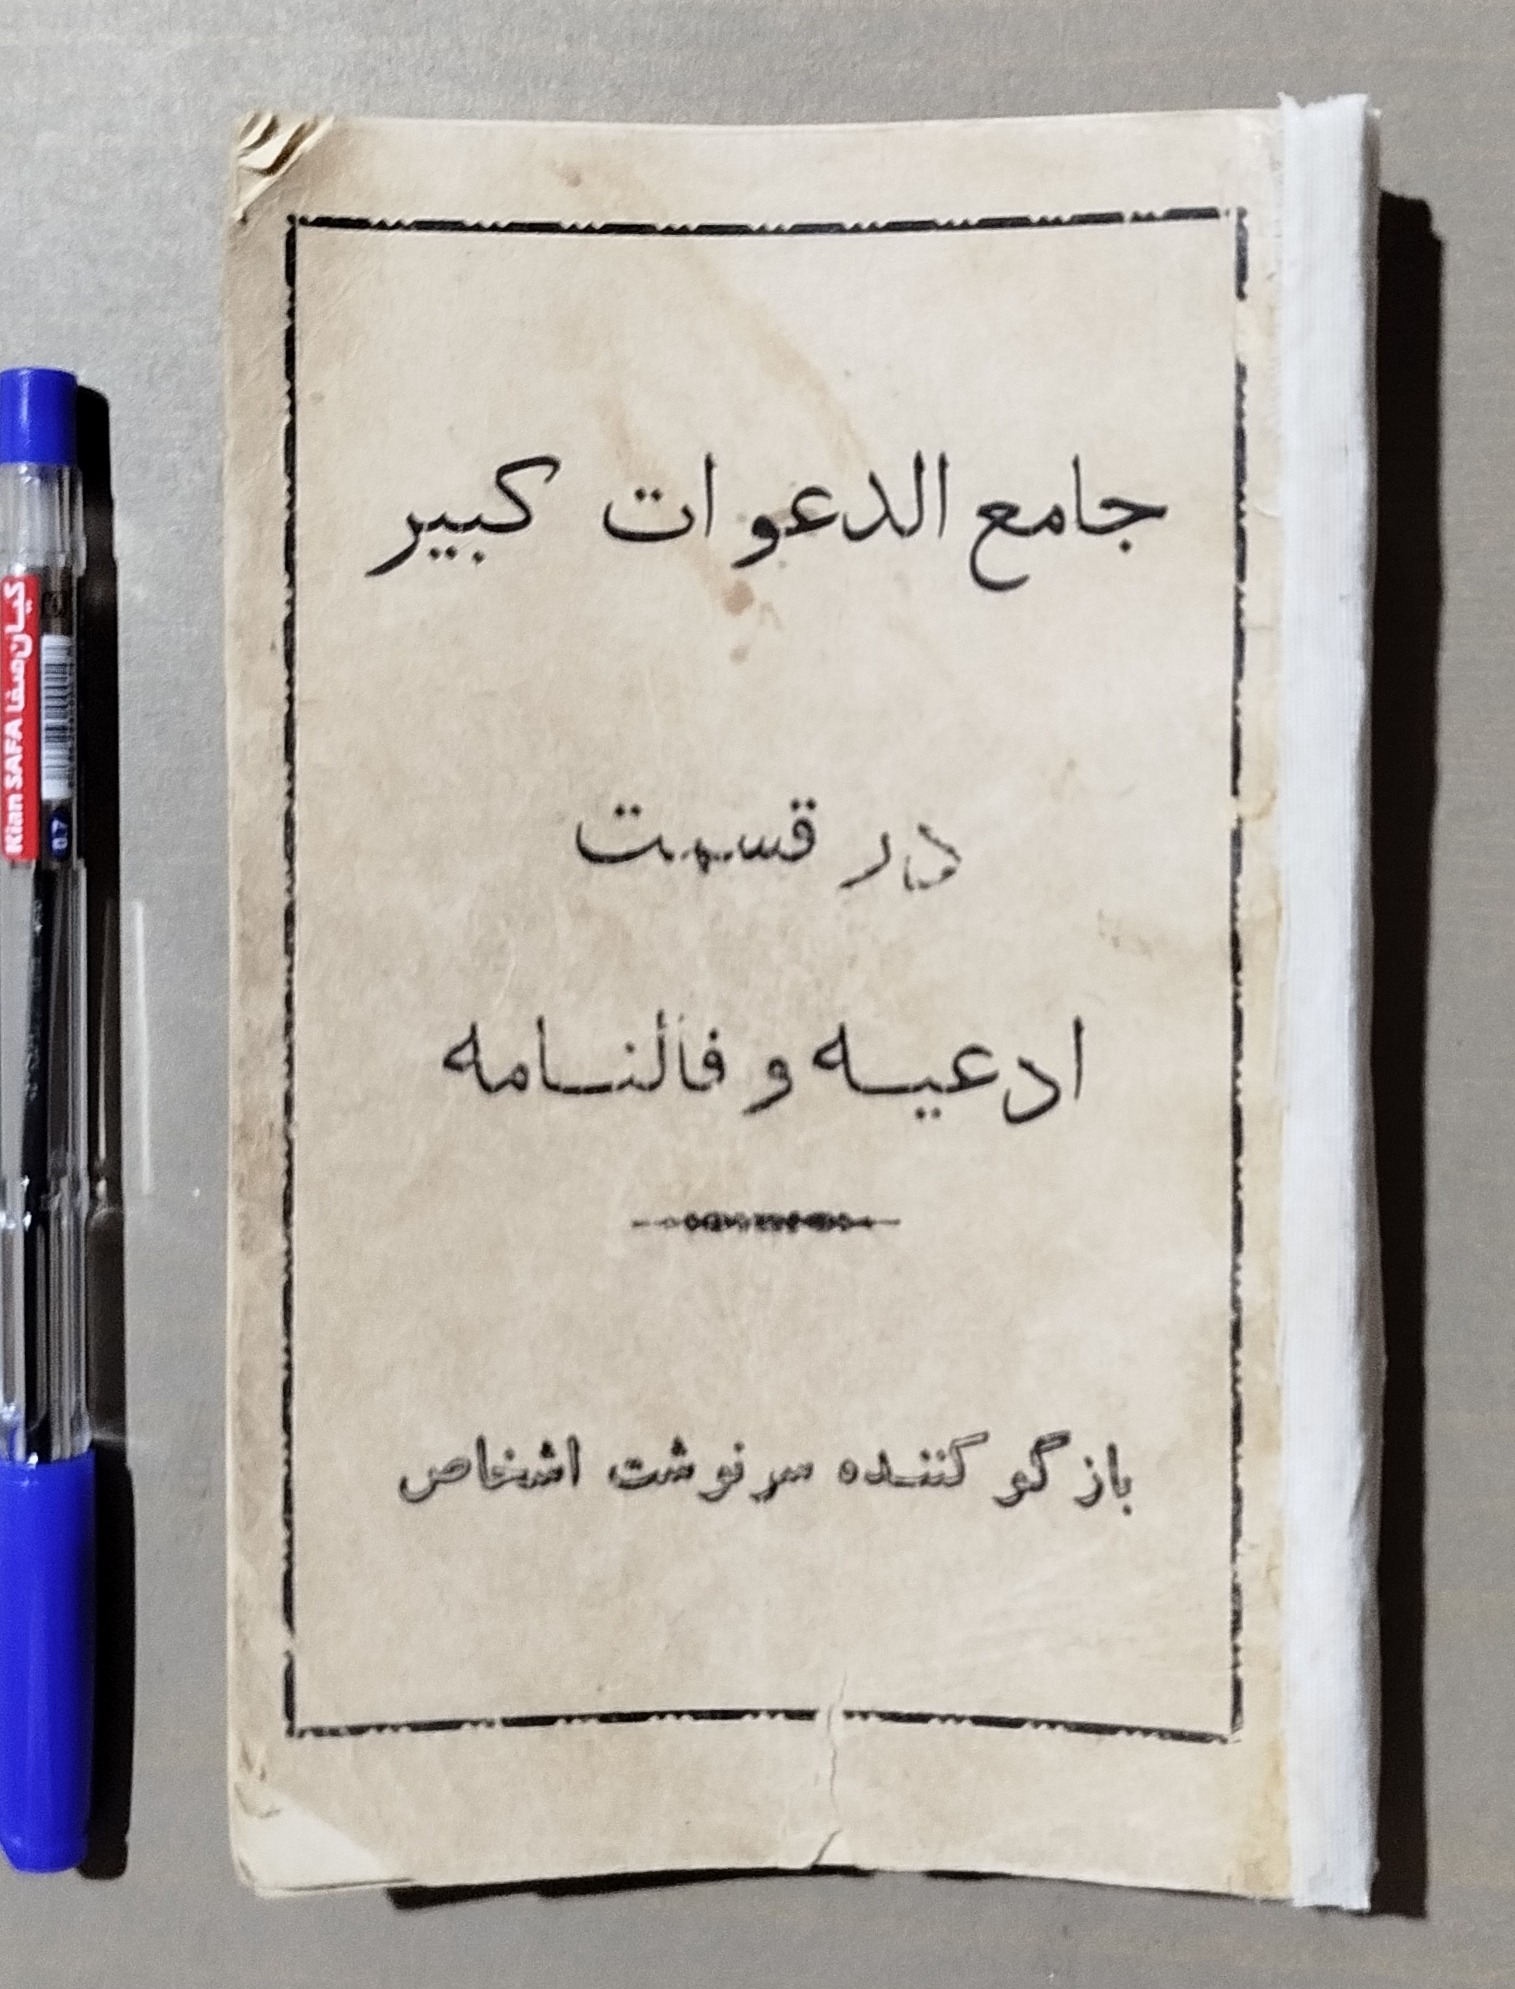 جامع الدعوات کبیر
در قسمت
ادعیه و فالنامه
بازگو کننده سرنوشت اشخاص
کیان صفا Kian SAFA
0.7